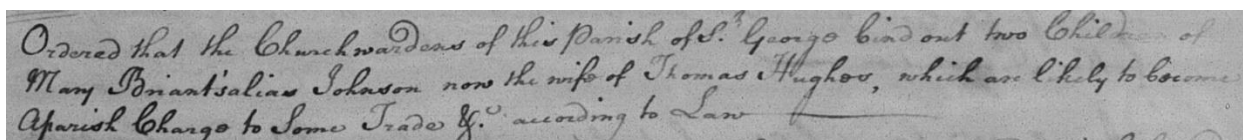 Ordered that the Churchwardens of this Parish of St. George bind out two Children of
Mary Briant's alias Johnson now the wife of Thomas Hughes, which are likely to become
a parish Charge to Some Trade &c. according to Law